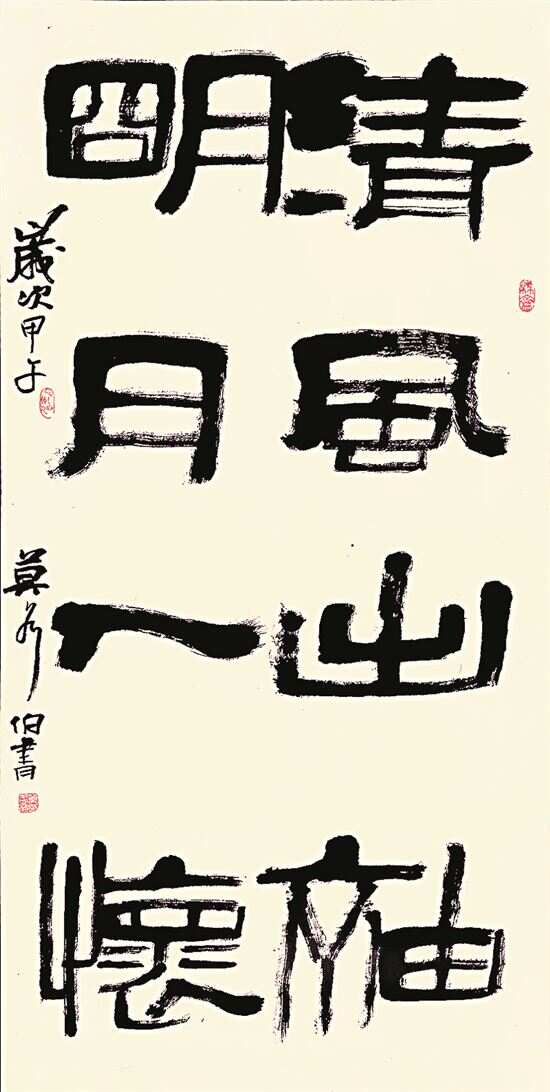 清風出袖
明月入懷
歲次甲午
莫各伯書